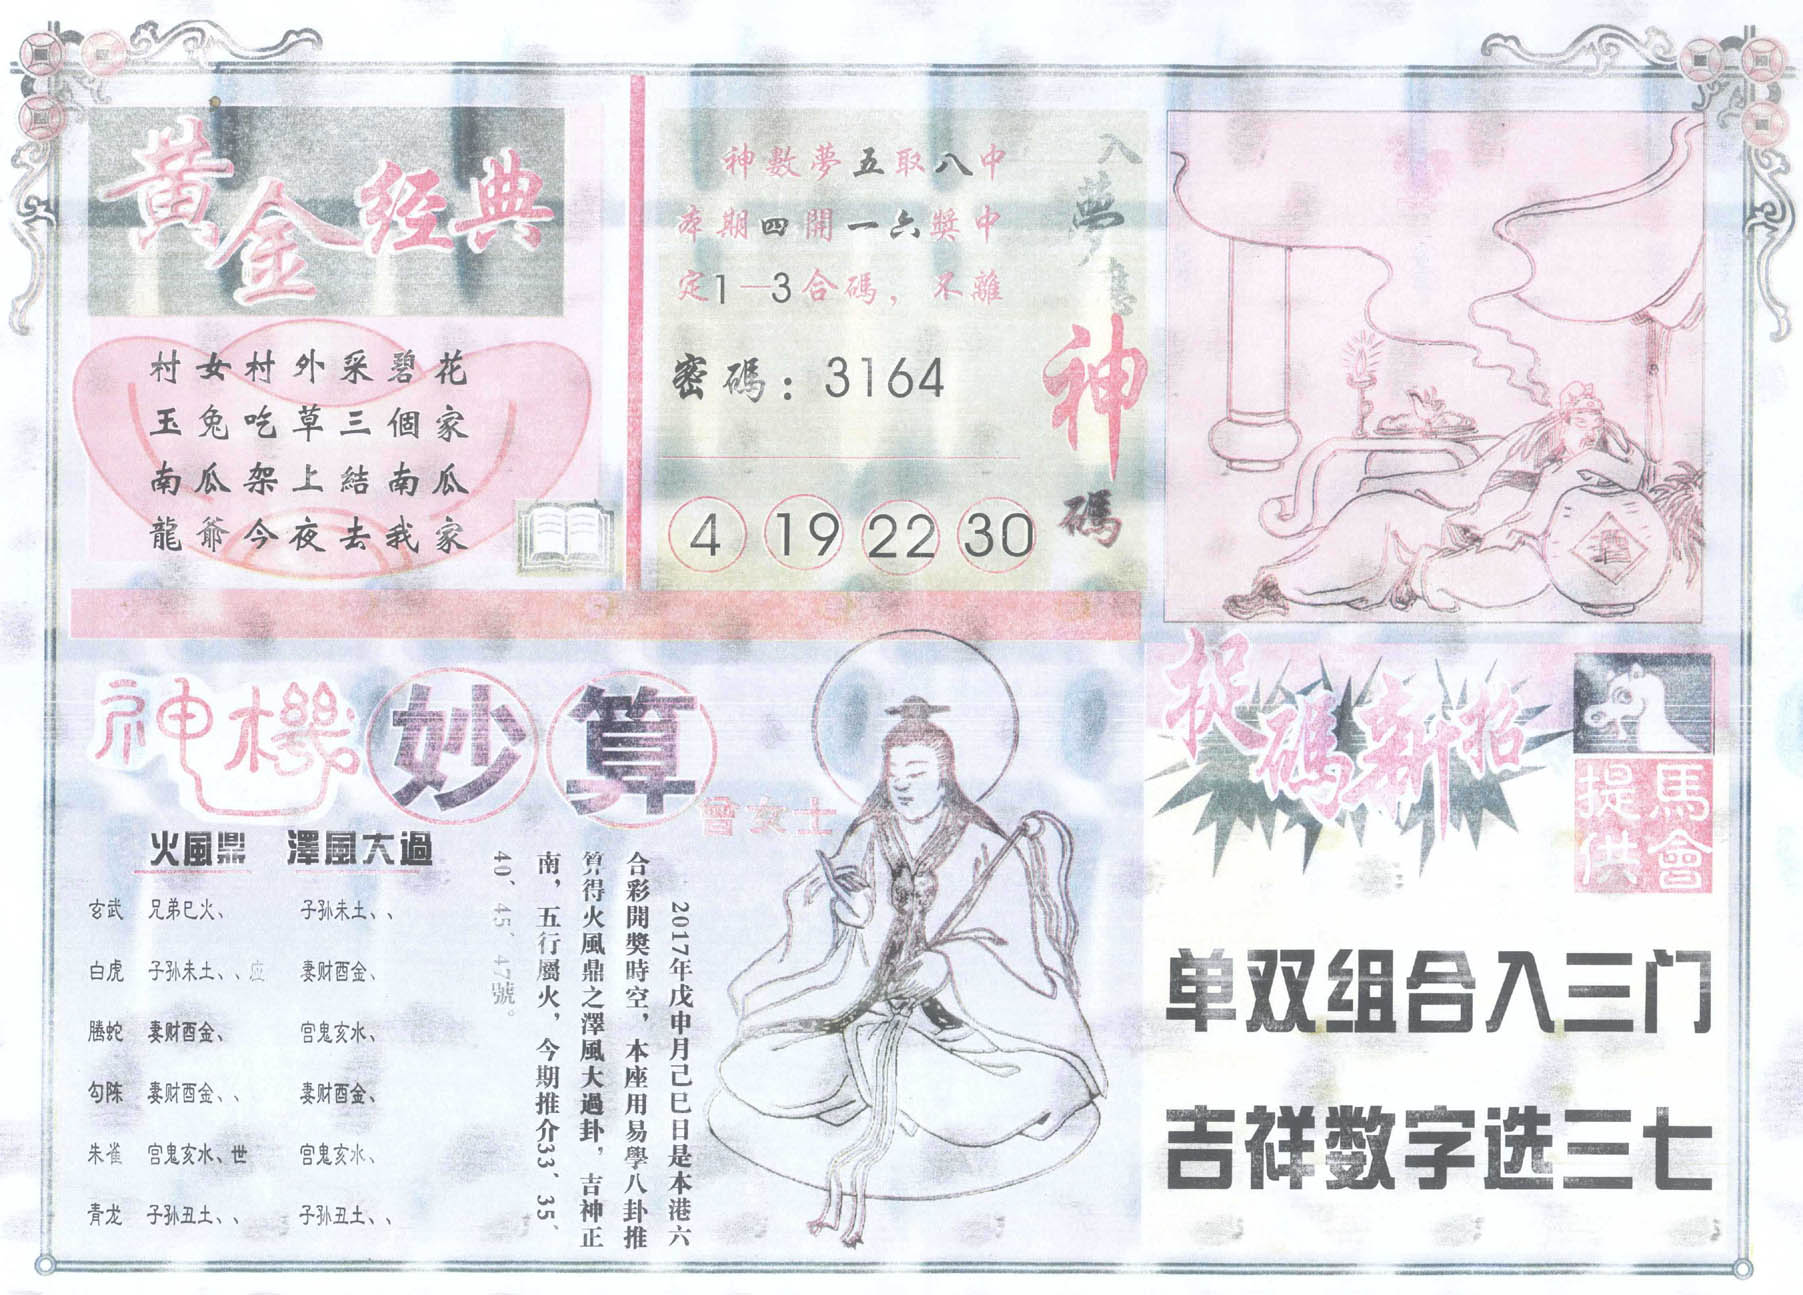 黄金经典
村女村外采碧花
玉兔吃草三個家
南瓜架上結南瓜
龍爺今夜去我家
神數夢五取八中
本期四開一六獎中
定1—3合碼，不離
密碼：3164
4 19 22 30
入夢
神碼
神機妙算
曾女士
火風鼎 澤風大過
玄武 兄弟巳火、 子孙未土、、
白虎 子孙未土、、应 妻财酉金、
腾蛇 妻财酉金、 官鬼亥水、
勾陈 妻财酉金、、 妻财酉金、
朱雀 官鬼亥水、世 官鬼亥水、
青龙 子孙丑土、、 子孙丑土、、
2017年戊申月己巳日是本港六
合彩開獎時空，本座用易學八卦推
算得火風鼎之澤風大過卦，吉神正
南，五行屬火，今期推介33、35、
40、45、47號。
捉碼新招
馬會
提供
单双组合入三门
吉祥数字选三七